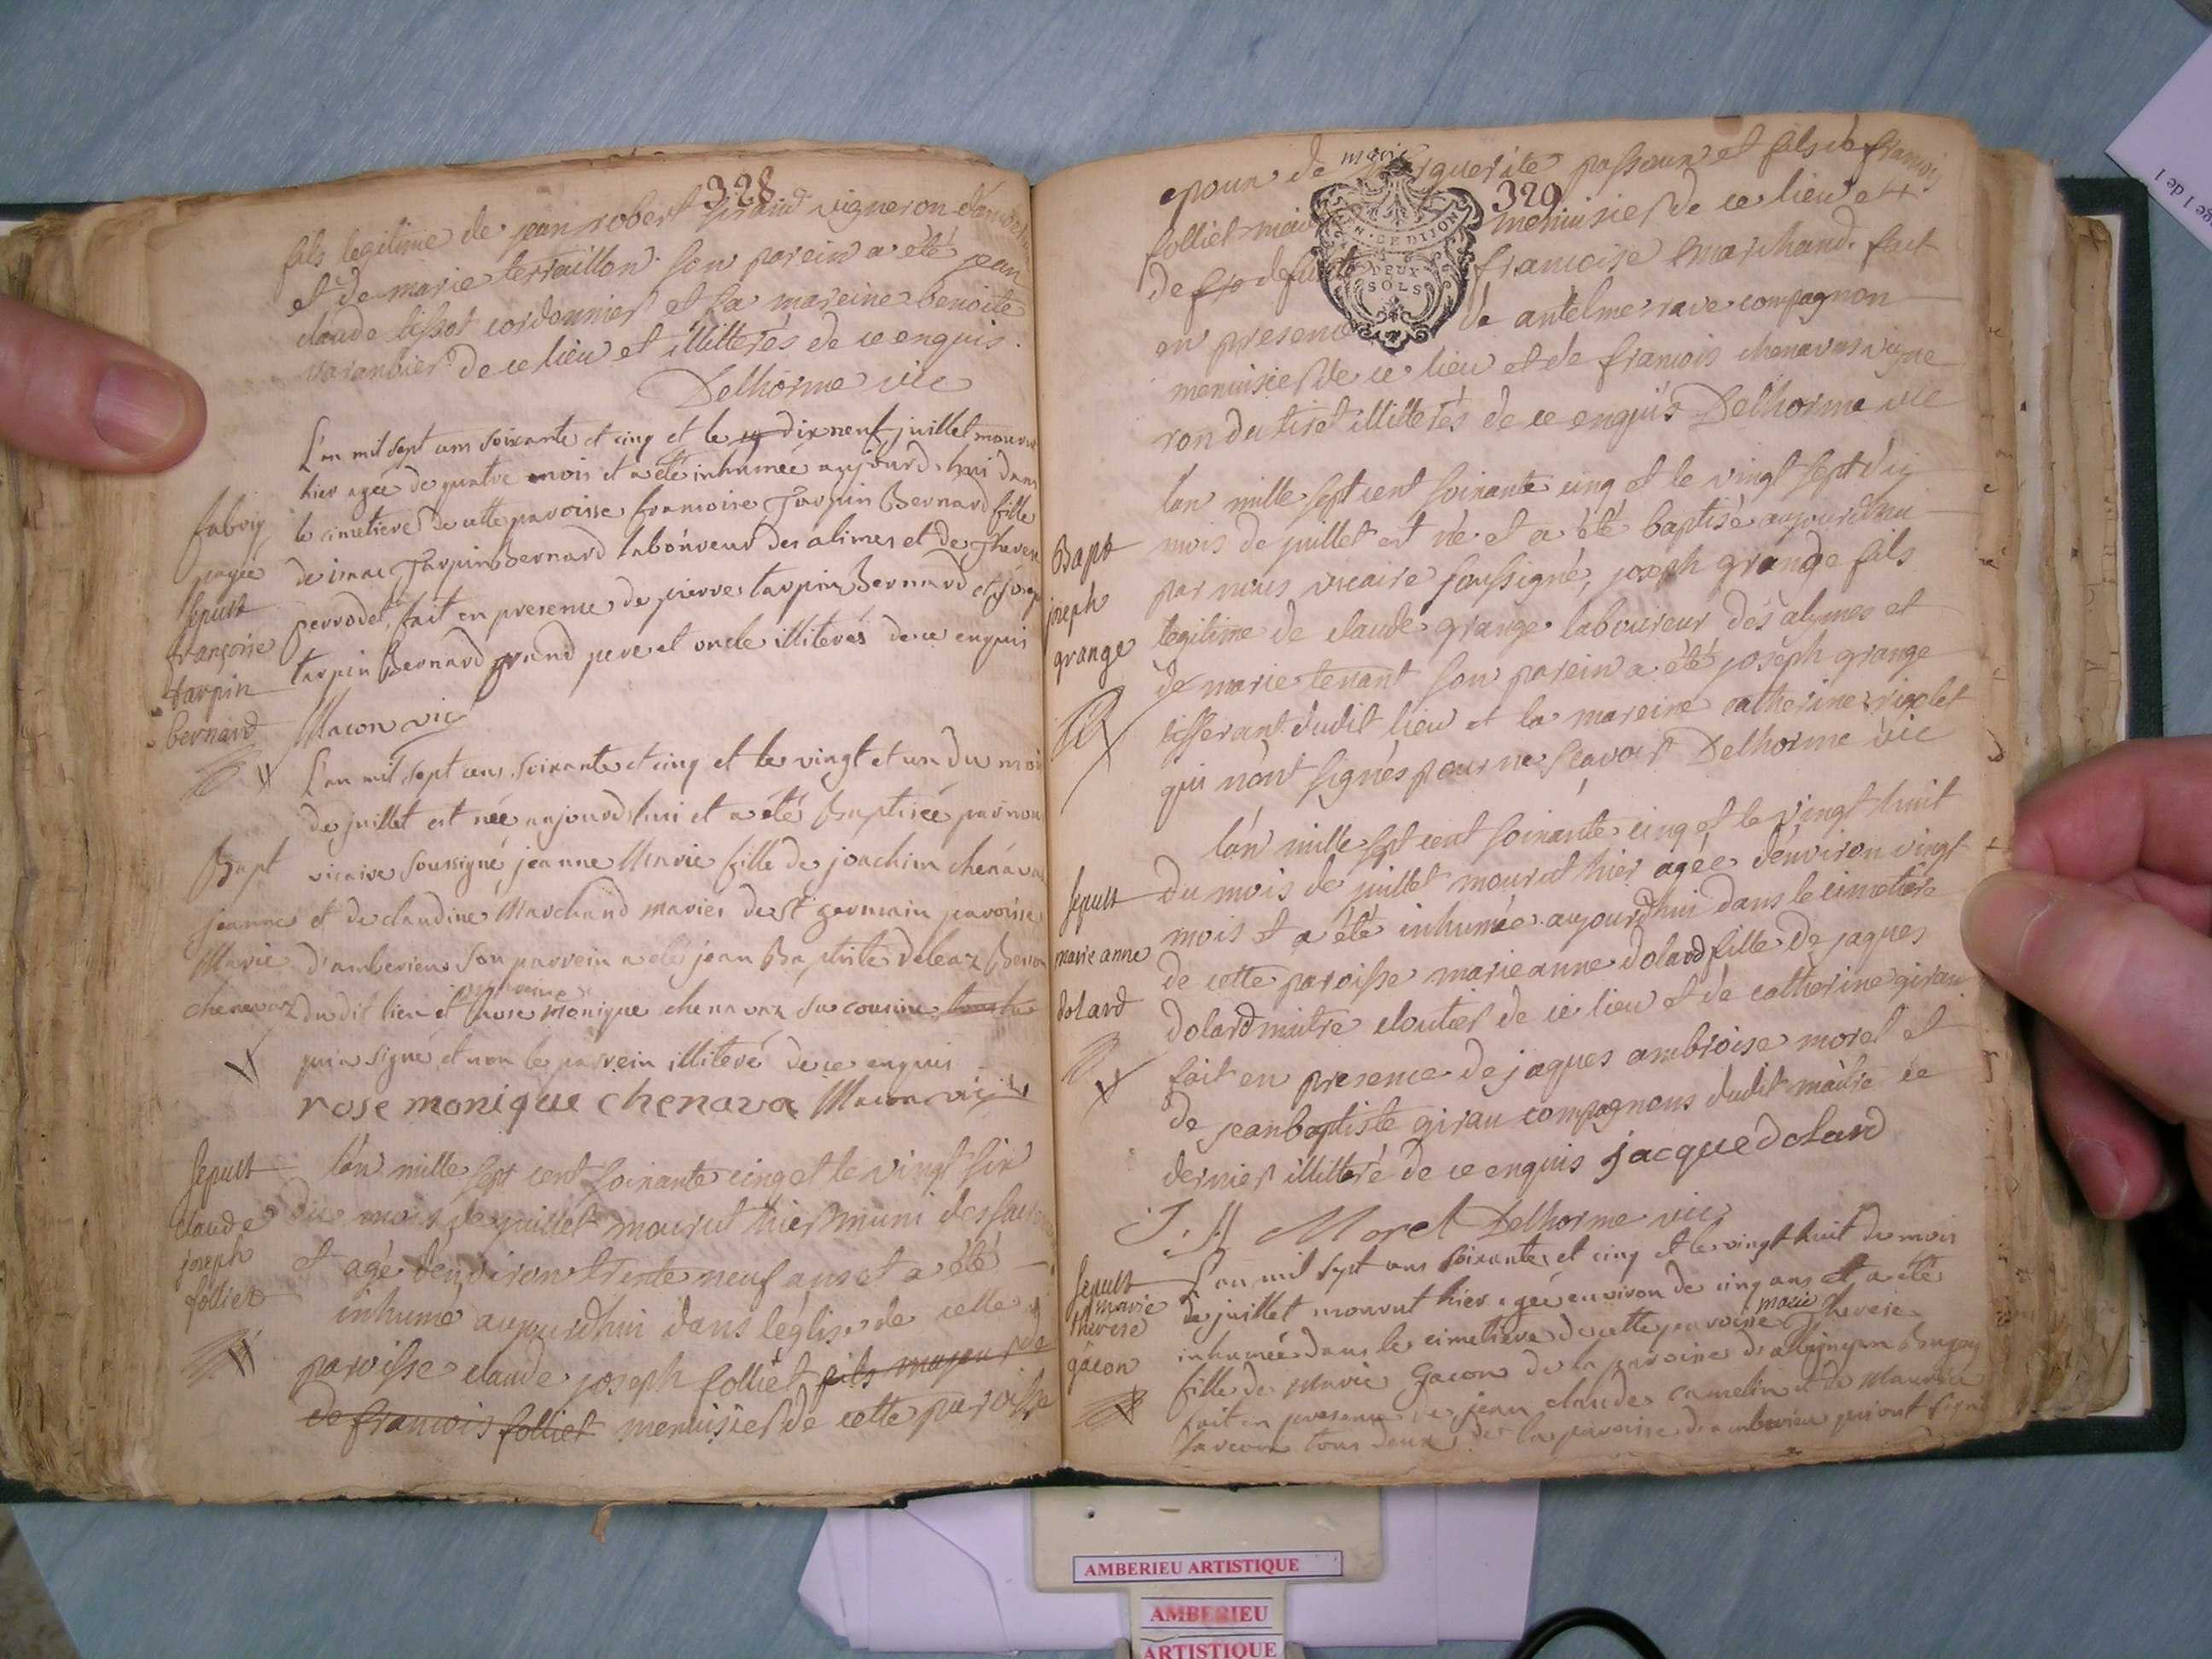 328
fils legitime de jean robert giraud vigneron
et de marie terraillon. son parein a été jean
claude tissot cordonnier et sa mareine benoite
varanbier de ce lieu et illitterés de ce enquis.
Delhorme vic
L'an mil sept cens soixante et cinq et le dixneuf juillet mourut
hier agée de quatre mois et a été inhumée aujourd'hui dans
le cimetiere de cette paroisse francoise Tarpin Bernard fille
de isaac Tarpin Bernard laboureur des alimes et de
perrodet, fait en presence de pierre tarpin Bernard et
tarpin Bernard grand pere et oncle illiterés de ce enquis
Macon vic
sepult
françoise
tarpin
bernard
L'an mil sept cens soixante et cinq et le vingt et un du mois
de juillet est née aujourd'hui et a été Baptisée par nou
vicaire soussigné, jeanne Marie fille de joachim chenava
et de claudine Marchand mariés de st germain paroisse
d'amberieu son parrein a été jean Baptiste deleaz
dudit lieu et rose monique chenavaz sa cousine
qui a signé et non le parrein illiteré de ce enquis
rose monique chenava Macon vic
Bapt
jeanne
Marie
chenavaz
lan mille sept cent soixante cinq et le vingt six
du mois de juillet mourut hier muni des
et agé denviron trente neuf ans et a été
inhumé aujourdhui dans léglise de cette
paroisse claude joseph folliet fils majeur de
de francois folliet menuisier de cette paroisse
sepult
claude
joseph
folliet
marie
epoux de marguerite et fils de francois
329
folliet menuisier de ce lieu et
de defunte francoise marchand. fait
en presence de antelme rave compagnon
menuisier de ce lieu et de francois chenavas vigne
ron du tiret illitterés de ce enquis Delhorme vic
GEN. DE DIJON
DEUX
SOLS
lan mille sept cent soixante cinq et le vingt sept du
mois de juillet est né et a été baptisé aujourdhui
par nous vicaire soussigné, joseph grange fils
legitime de claude grange laboureur des alymes et
de marie tenant son parein a été joseph grange
tisserant dudit lieu et la mareine catherine
qui nont signés pour ne scavoir Delhorme vic
Bapt
joseph
grange
lan mille sept cent soixante cinq et le vingt huit
du mois de juillet mourut hier agée denviron vingt
mois et a été inhumée aujourdhui dans le cimetiere
de cette paroisse marie anne dolard fille de jaques
dolard maitre cloutier de ce lieu et de catherine girau
fait en presence de jaques ambroise morel et
de jean baptiste girau compagnons dudit maitre ce
dernier illitteré de ce enquis jacque dolard
J. A Morel Delhorme vic
sepult
marie anne
dolard
L'an mil sept cens soixante et cinq et le vingt huit du mois
de juillet mourut hier agée environ de cinq ans et a été
inhumée dans le cimetiere de cette paroisse marie Therese
fille de Marie Gacon de la paroisse
fait en presence de jean claude camelin et de Maurice
tous deux de la paroisse d'amberieu qui ont signé
sepult
marie
therese
gacon
AMBERIEU ARTISTIQUE
AMBERIEU
ARTISTIQUE